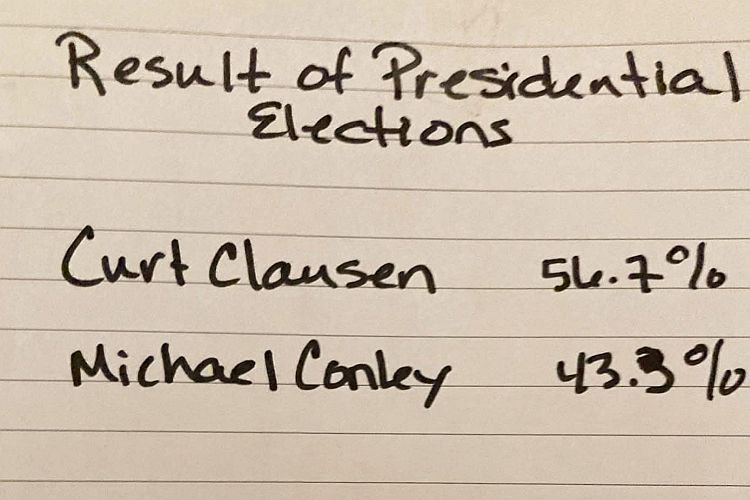 Result of Presidential
Elections
Curt Clausen 56.7%
Michael Conley 43.3%